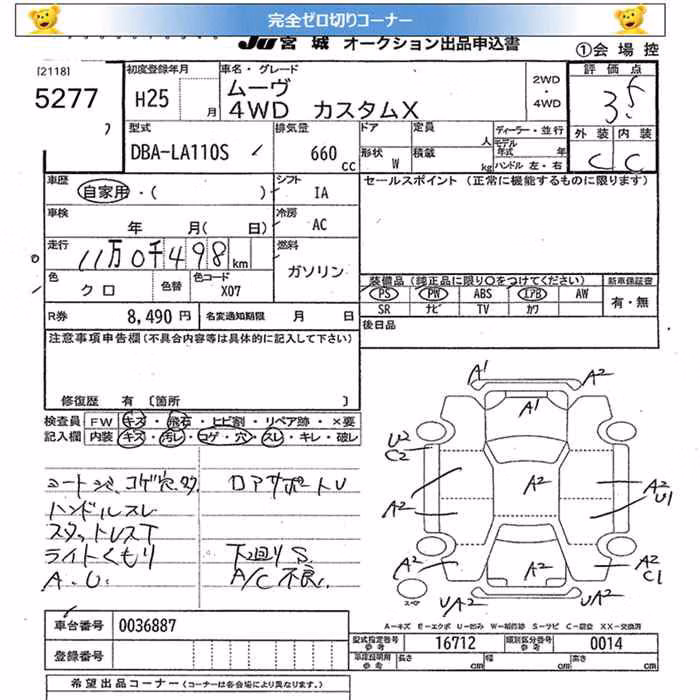 完全ゼロ切りコーナー
JU 宮城 オークション出品申込書
①会場控
[2118]
5277
初度登録年月
H25 月
車名・グレード
ムーヴ
4WD カスタムX
2WD
・
4WD
評価点
3.5
外装 内装
C C
型式
DBA-LA110S
排気量
660 cc
ドア
定員 人
形状 W
積載 kg
ディーラー・並行
モデル年式 年
ハンドル 左・右
車歴 自家用・( )
シフト IA
セールスポイント (正常に機能するものに限ります)
車検 年 月( 日)
冷房 AC
走行 11万0千498km
燃料 ガソリン
色 クロ
色替
色コード X07
装備品 (純正品に限り○をつけてください)
PS PW ABS エアB AW
SR ナビ TV カワ
新車保証書
有・無
R券 8,490円
名変通知期限 月 日
後日品
注意事項申告欄(不具合内容等は具体的に記入して下さい)
修復歴 有 〔箇所 〕
検査員記入欄
FW キズ・飛石・ヒビ割・リペア跡・×要
内装 キズ・汚レ・コゲ・穴・スレ・キレ・破レ
コゲ穴
ロアサポートU
ハンドルスレ
ライトくもり
下回りS
A.U.
A/C不良
A1 A2
A1
U2
C2
A2
A2
A2
A2
U1
A2
A2
A2
C1
UA2
UA2
スペア
A-キズ E-エクボ U-凹み W-補修跡 S-サビ C-腐食 XX-交換済
車台番号 0036887
登録番号
型式指定番号 参考 16712
類別区分番号 参考 0014
車庫証明用 参考 長さ cm 幅 cm 高さ cm
希望出品コーナー (コーナーは各会場により異なります。)